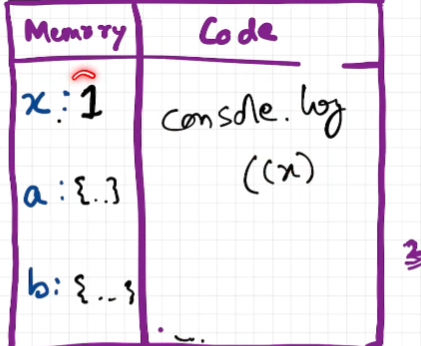 Memory Code
x: 1
console.log
((x)
a: {..}
b: {..}
2